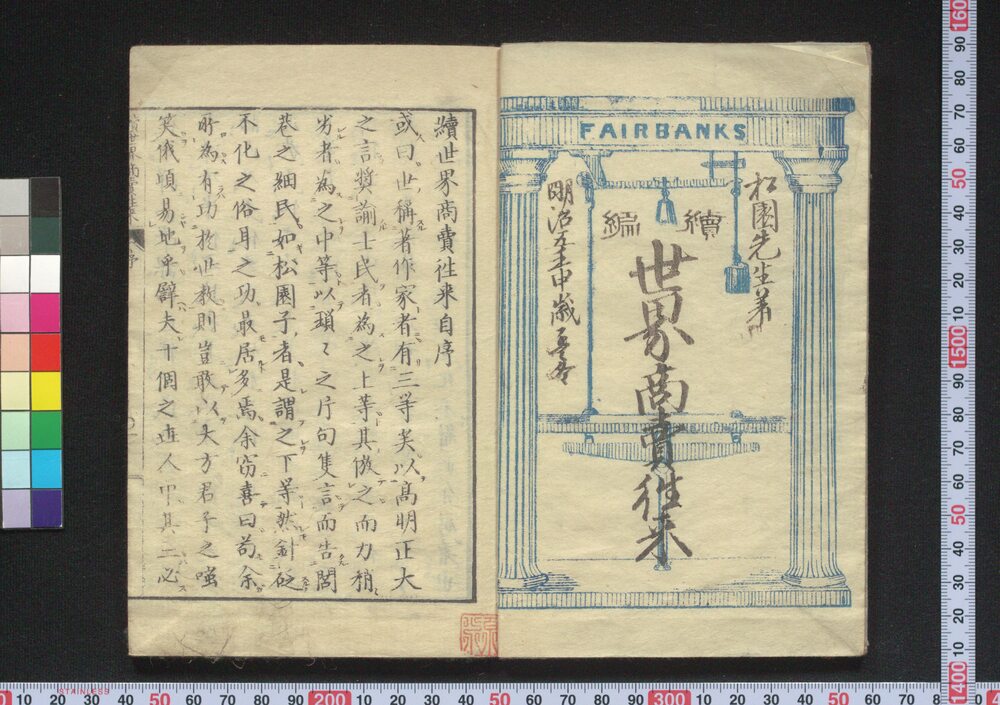 FAIRBANKS
松園先生著
續編
世界商賣往来
明治五壬申歳
續世界商賣往来自序
或曰世稱著作家者有三等矣以高明正大
之言奨諭士民者為之上等其倣之而力稍
劣者為之中等以瑣々之片句集言而告閭
巷之細民如松園子者是謂之下等然針砭
不化之俗耳之功最居多焉余窃喜曰苟余
所為有功於世教則豈敢以大方君子之嗤
笑俄頃易地乎譬夫十個之世人中其二必